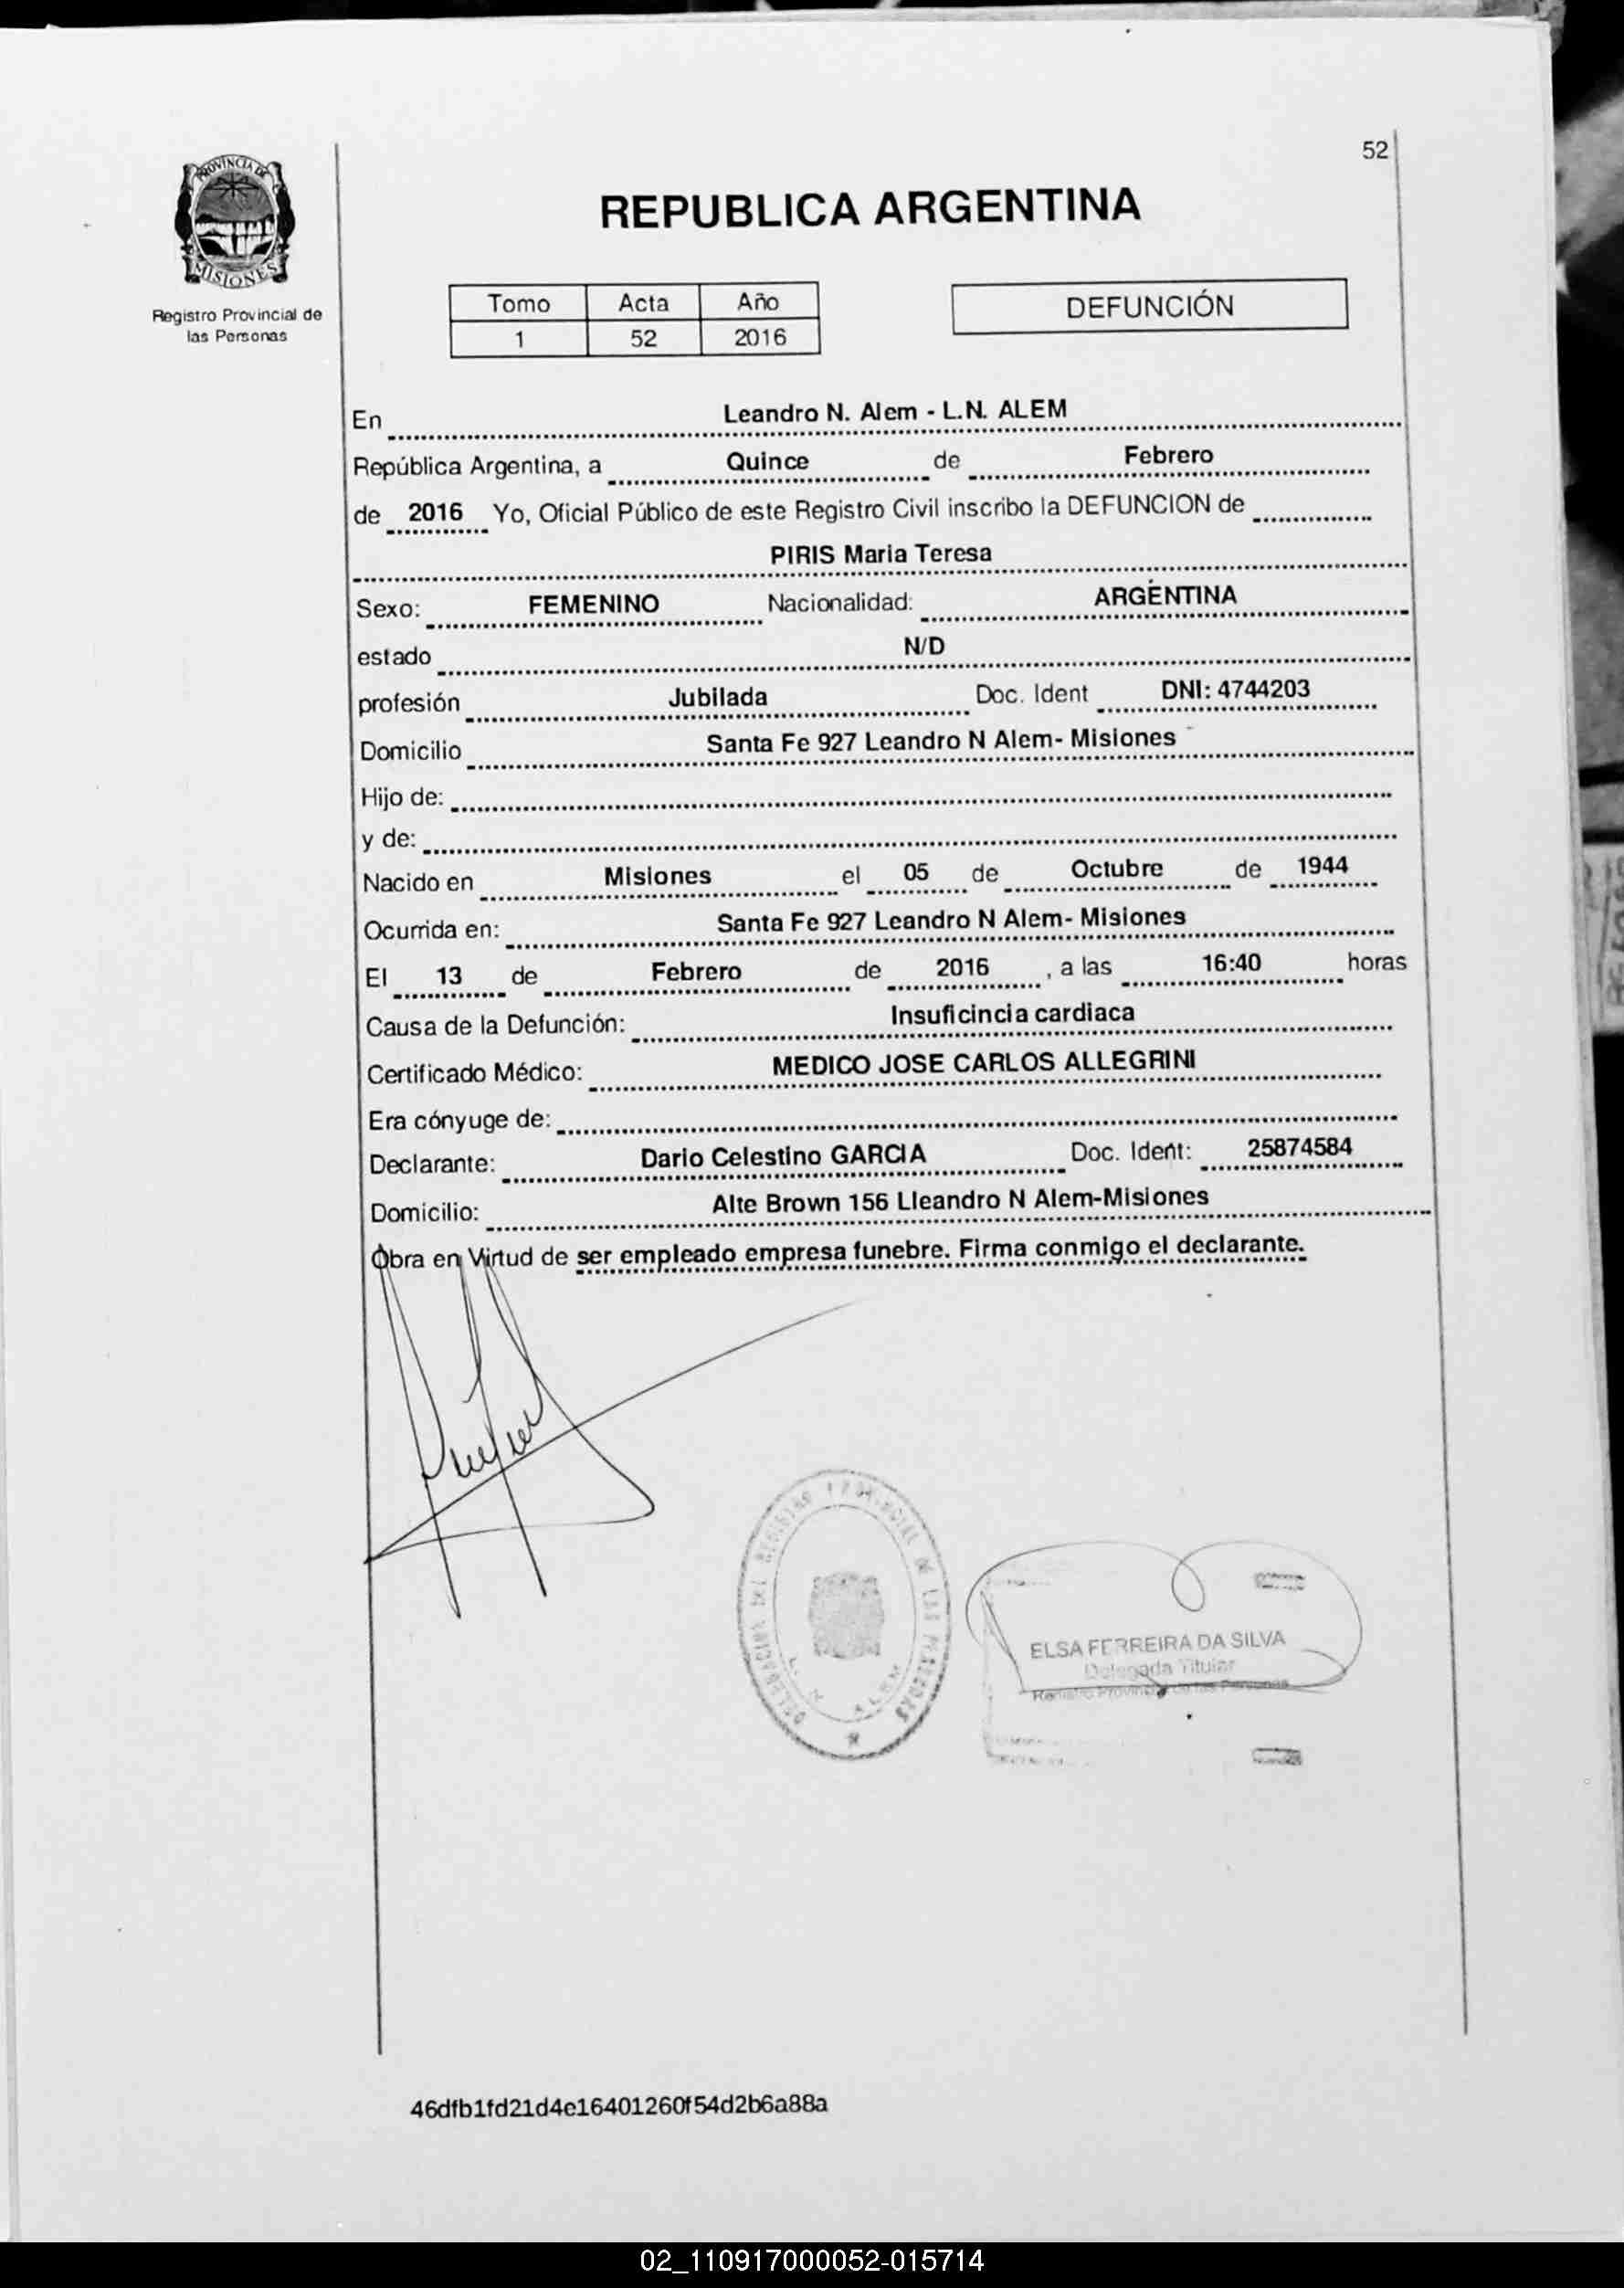 52
PROVINCIA DE
MISIONES
Registro Provincial de
las Personas
REPUBLICA ARGENTINA
Tomo Acta Año
1 52 2016
DEFUNCIÓN
En Leandro N. Alem - L.N. ALEM
República Argentina, a Quince de Febrero
de 2016 Yo, Oficial Público de este Registro Civil inscribo la DEFUNCION de
PIRIS Maria Teresa
Sexo: FEMENINO Nacionalidad: ARGENTINA
estado N/D
profesión Jubilada Doc. Ident DNI: 4744203
Domicilio Santa Fe 927 Leandro N Alem- Misiones
Hijo de:
y de:
Nacido en Misiones el 05 de Octubre de 1944
Ocurrida en: Santa Fe 927 Leandro N Alem- Misiones
El 13 de Febrero de 2016 , a las 16:40 horas
Causa de la Defunción: Insuficincia cardiaca
Certificado Médico: MEDICO JOSE CARLOS ALLEGRINI
Era cónyuge de:
Declarante: Dario Celestino GARCIA Doc. Ident: 25874584
Domicilio: Alte Brown 156 Lleandro N Alem-Misiones
Obra en Virtud de ser empleado empresa funebre. Firma conmigo el declarante.
DELEGACION DEL REGISTRO PROVINCIAL DE LAS PERSONAS
L. N. ALEM
ELSA FERREIRA DA SILVA
Delegada Titular
Registro Provincial de las Personas
46dfb1fd21d4e16401260f54d2b6a88a
02_110917000052-015714